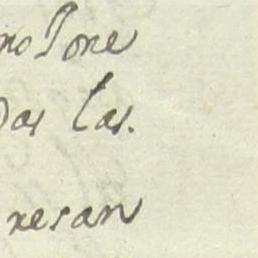 no Pone
das las.
resan